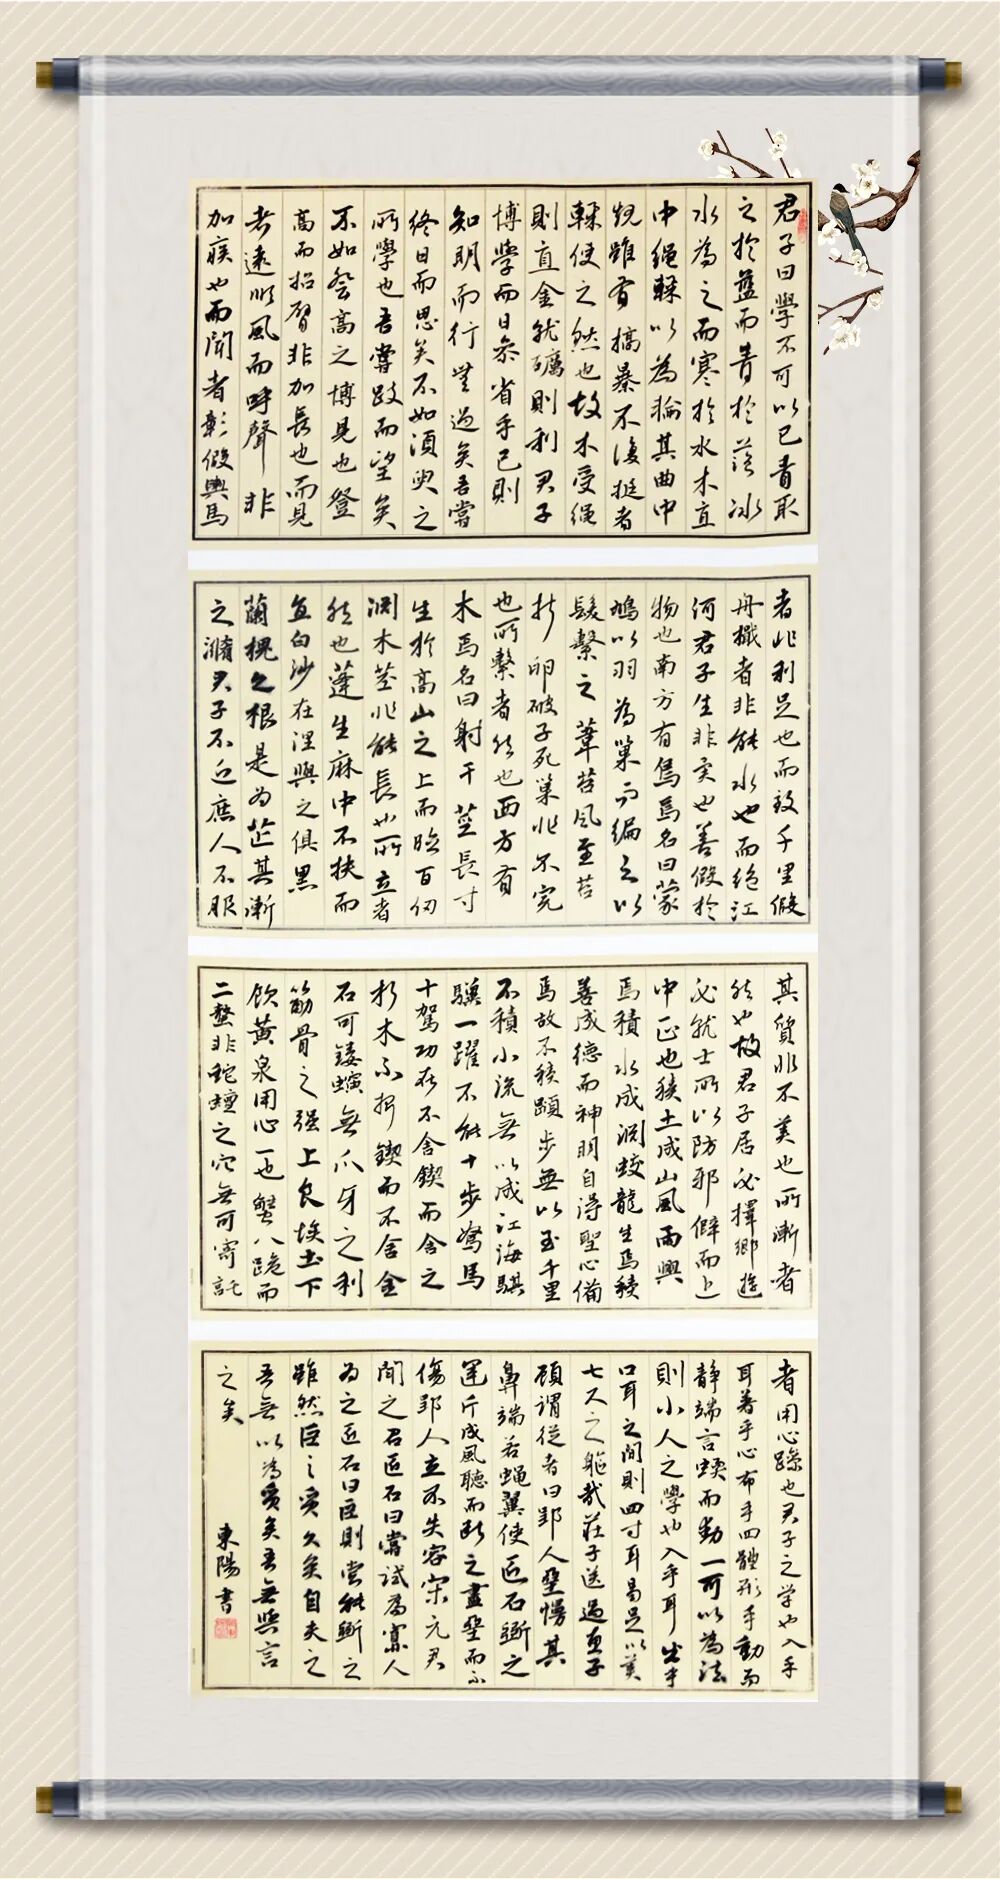 君子曰學不可以已青取
之於藍而青於藍冰
水為之而寒於水木直
中繩輮以為輪其曲中
規雖有槁暴不復挺者
輮使之然也故木受繩
則直金就礪則利君子
博學而日參省乎己則
知明而行無過矣吾嘗
終日而思矣不如須臾之
所學也吾嘗跂而望矣
不如登高之博見也登
高而招臂非加長也而見
者遠順風而呼聲非
加疾也而聞者彰假輿馬
者非利足也而致千里假
舟檝者非能水也而絶江
河君子生非異也善假於
物也南方有鳥焉名曰蒙
鳩以羽為巢而編之以
髮繫之葦苕風至苕
折卵破子死巢非不完
也所繫者然也西方有
木焉名曰射干莖長寸
生於高山之上而臨百仞
淵木莖非能長也所立者
然也蓬生麻中不扶而
直白沙在涅與之俱黑
蘭槐之根是為芷其漸
之滫君子不近庶人不服
其質非不美也所漸者
然也故君子居必擇鄉遊
必就士所以防邪僻而近
中正也積土成山風雨興
焉積水成淵蛟龍生焉積
善成德而神明自得聖心備
焉故不積蹞步無以至千里
不積小流無以成江海騏
驥一躍不能十步駑馬
十駕功在不舍鍥而舍之
朽木不折鍥而不舍金
石可鏤螾無爪牙之利
筋骨之强上食埃土下
飲黃泉用心一也蟹八跪而
二螯非蛇蟺之穴無可寄託
者用心躁也君子之学也入乎
耳著乎心布乎四體形乎動而
靜端言蝡而動一可以為法
則小人之學也入乎耳出乎
口耳之間則四寸耳曷足以美
七尺之軀哉莊子送過惠子
顧謂從者曰郢人堊慢其
鼻端若蠅翼使匠石斲之
運斤成風聽而斲之盡堊而不
傷郢人立不失容宋元君
聞之召匠石曰嘗試為寡人
為之匠石曰臣則嘗能斲之
雖然臣之質久矣自夫之
吾無以為質矣吾無與言
之矣
東陽書